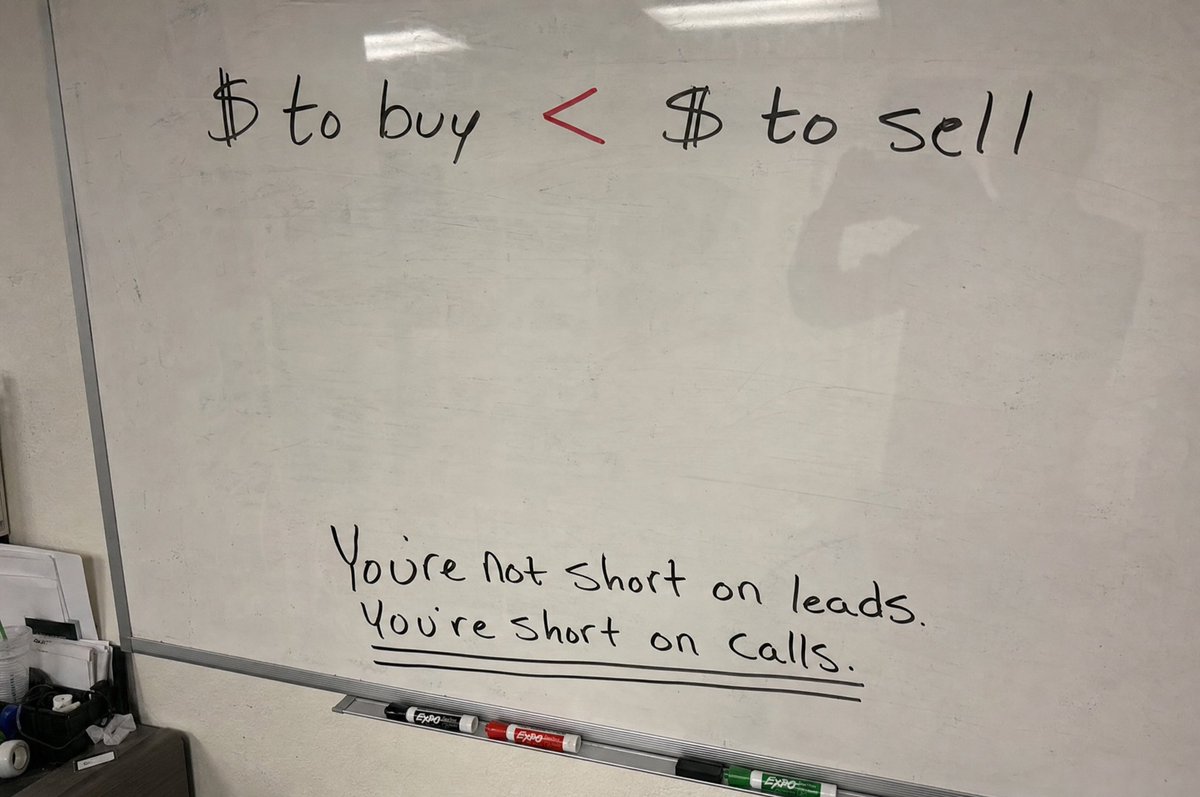 $ to buy < $ to sell
You're not short on leads.
You're short on calls.
EXPO
EXPO
EXPO